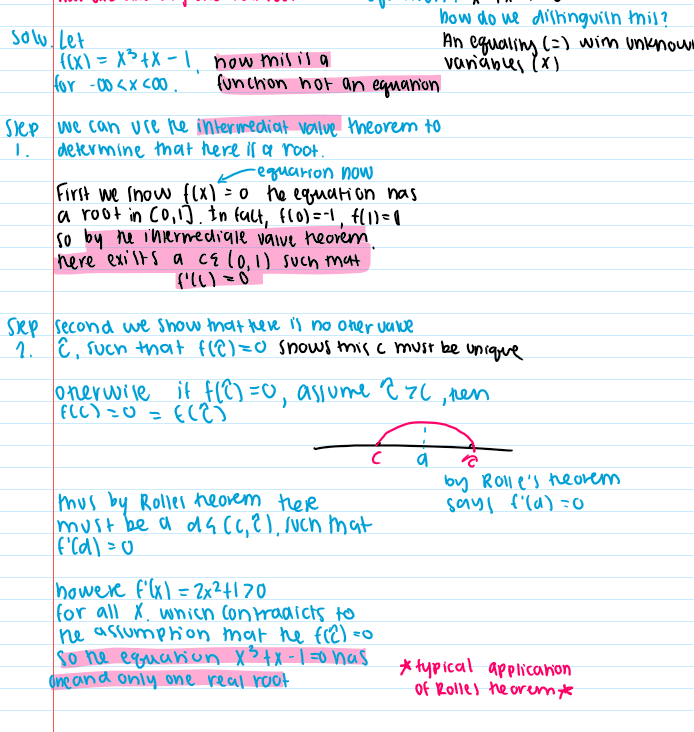 how do we distinguish this?
Solu. Let
An equality (=) with unknown
f(x) = x³+x-1, now this is a
variables (x)
for -∞<x<∞. function not an equation
Step we can use the intermediat value theorem to
1. determine that there is a root.
equation now
First we show f(x)=0 the equation has
a root in [0,1]. In fact, f(0)=-1, f(1)=1
so by the intermediate value theorem,
there exists a c∈(0,1) such that
f'(c)=0
Step second we show that there is no other value
2. ĉ, such that f(ĉ)=0 shows this c must be unique
otherwise if f(ĉ)=0, assume ĉ>c, then
f(c)=0=f(ĉ)
c d ĉ
by Rolle's theorem
says f'(d)=0
thus by Rolles theorem there
must be a d∈(c,ĉ), such that
f'(d)=0
howere f'(x)=2x²+1>0
for all x. which contradicts to
the assumption that the f(ĉ)=0
so the equation x³+x-1=0 has
one and only one real root
*typical application
of Rolles theorem*